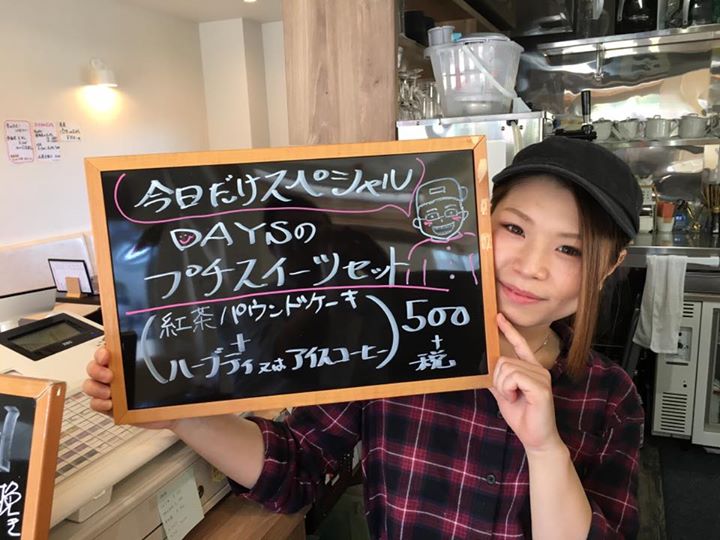 今日だけスペシャル
DAYSの
プチスイーツセット
紅茶パウンドケーキ
+
ハーブティ又はアイスコーヒー
500
+
税
挽き